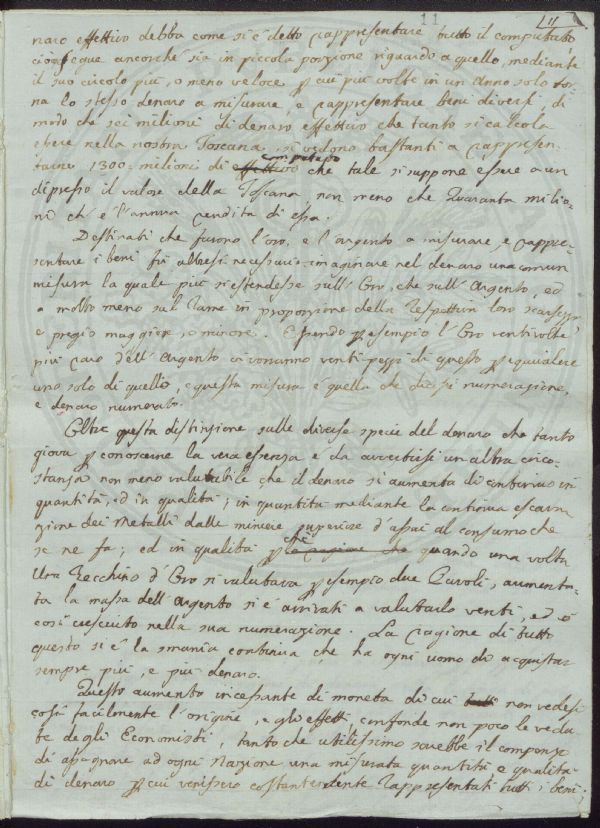 11
11
naro effettivo debba come si è detto rappresentare tutto il computato,
cioè che ancorché sia in piccola porzione riguardo a quello, mediante
il suo circolo più, o meno veloce p cui più volte in un anno solo tor-
na lo stesso denaro a misurare, e rappresentare beni diversi, di
modo che sei milioni di denaro effettivo che tanto si calcola
essere nella nostra Toscana, si vedono bastanti a rappresen-
tarne 1300 milioni di effettivo computato che tale si suppone essere a un
dipresso il valore della Toscana non meno che Quaranta milio-
ni ch'è l'annua rendita di essa.
Destinati che furono l'oro, e l'argento a misurare, e rappre-
sentare i beni fù altresi necessario immaginare nel denaro una comun
misura la quale più si estendesse sull'Oro, che sull'Argento, ed
a molto meno sul Rame in proporzione della respettiva loro scarsezza
e pregio maggiore, o minore. Essendo p esempio l'Oro venti volte
più raro dell'Argento vi vorranno venti pezzi di questo p equivalere
uno solo di quello, e questa misura è quella che dicesi numerazione,
e denaro numerato.
Oltre questa distinzione sulle diverse specie del denaro che tanto
giova p conoscerne la vera essenza è da avvertirsi un altra circo-
stanza non meno valutabile che il denaro si aumenta di continuo in
quantità, ed in qualità; in quantità mediante la continua escava-
zione dei Metalli dalle miniere superiore d'assai al consumo che
se ne fa; ed in qualità p che la ragione che quando una volta
Una Zecchino d'Oro si valutava p esempio due Pavoli, aumenta-
ta la massa dell'Argento si è arrivati a valutarlo venti, ed è
così cresciuto nella sua numerazione. La ragione di tutto
questo si è la smania continua che ha ogni uomo di acquistar
sempre più, e più denaro.
Questo aumento incessante di moneta di cui tutti non vedesi
così facilmente l'origine, e gli effetti, confonde non poco le vedu-
te degli Economisti, tanto che utilissimo sarebbe il compenso
di assegnare ad ogni Nazione una misurata quantità e qualità
di denaro p cui venissero costantemente rappresentati tutti i beni